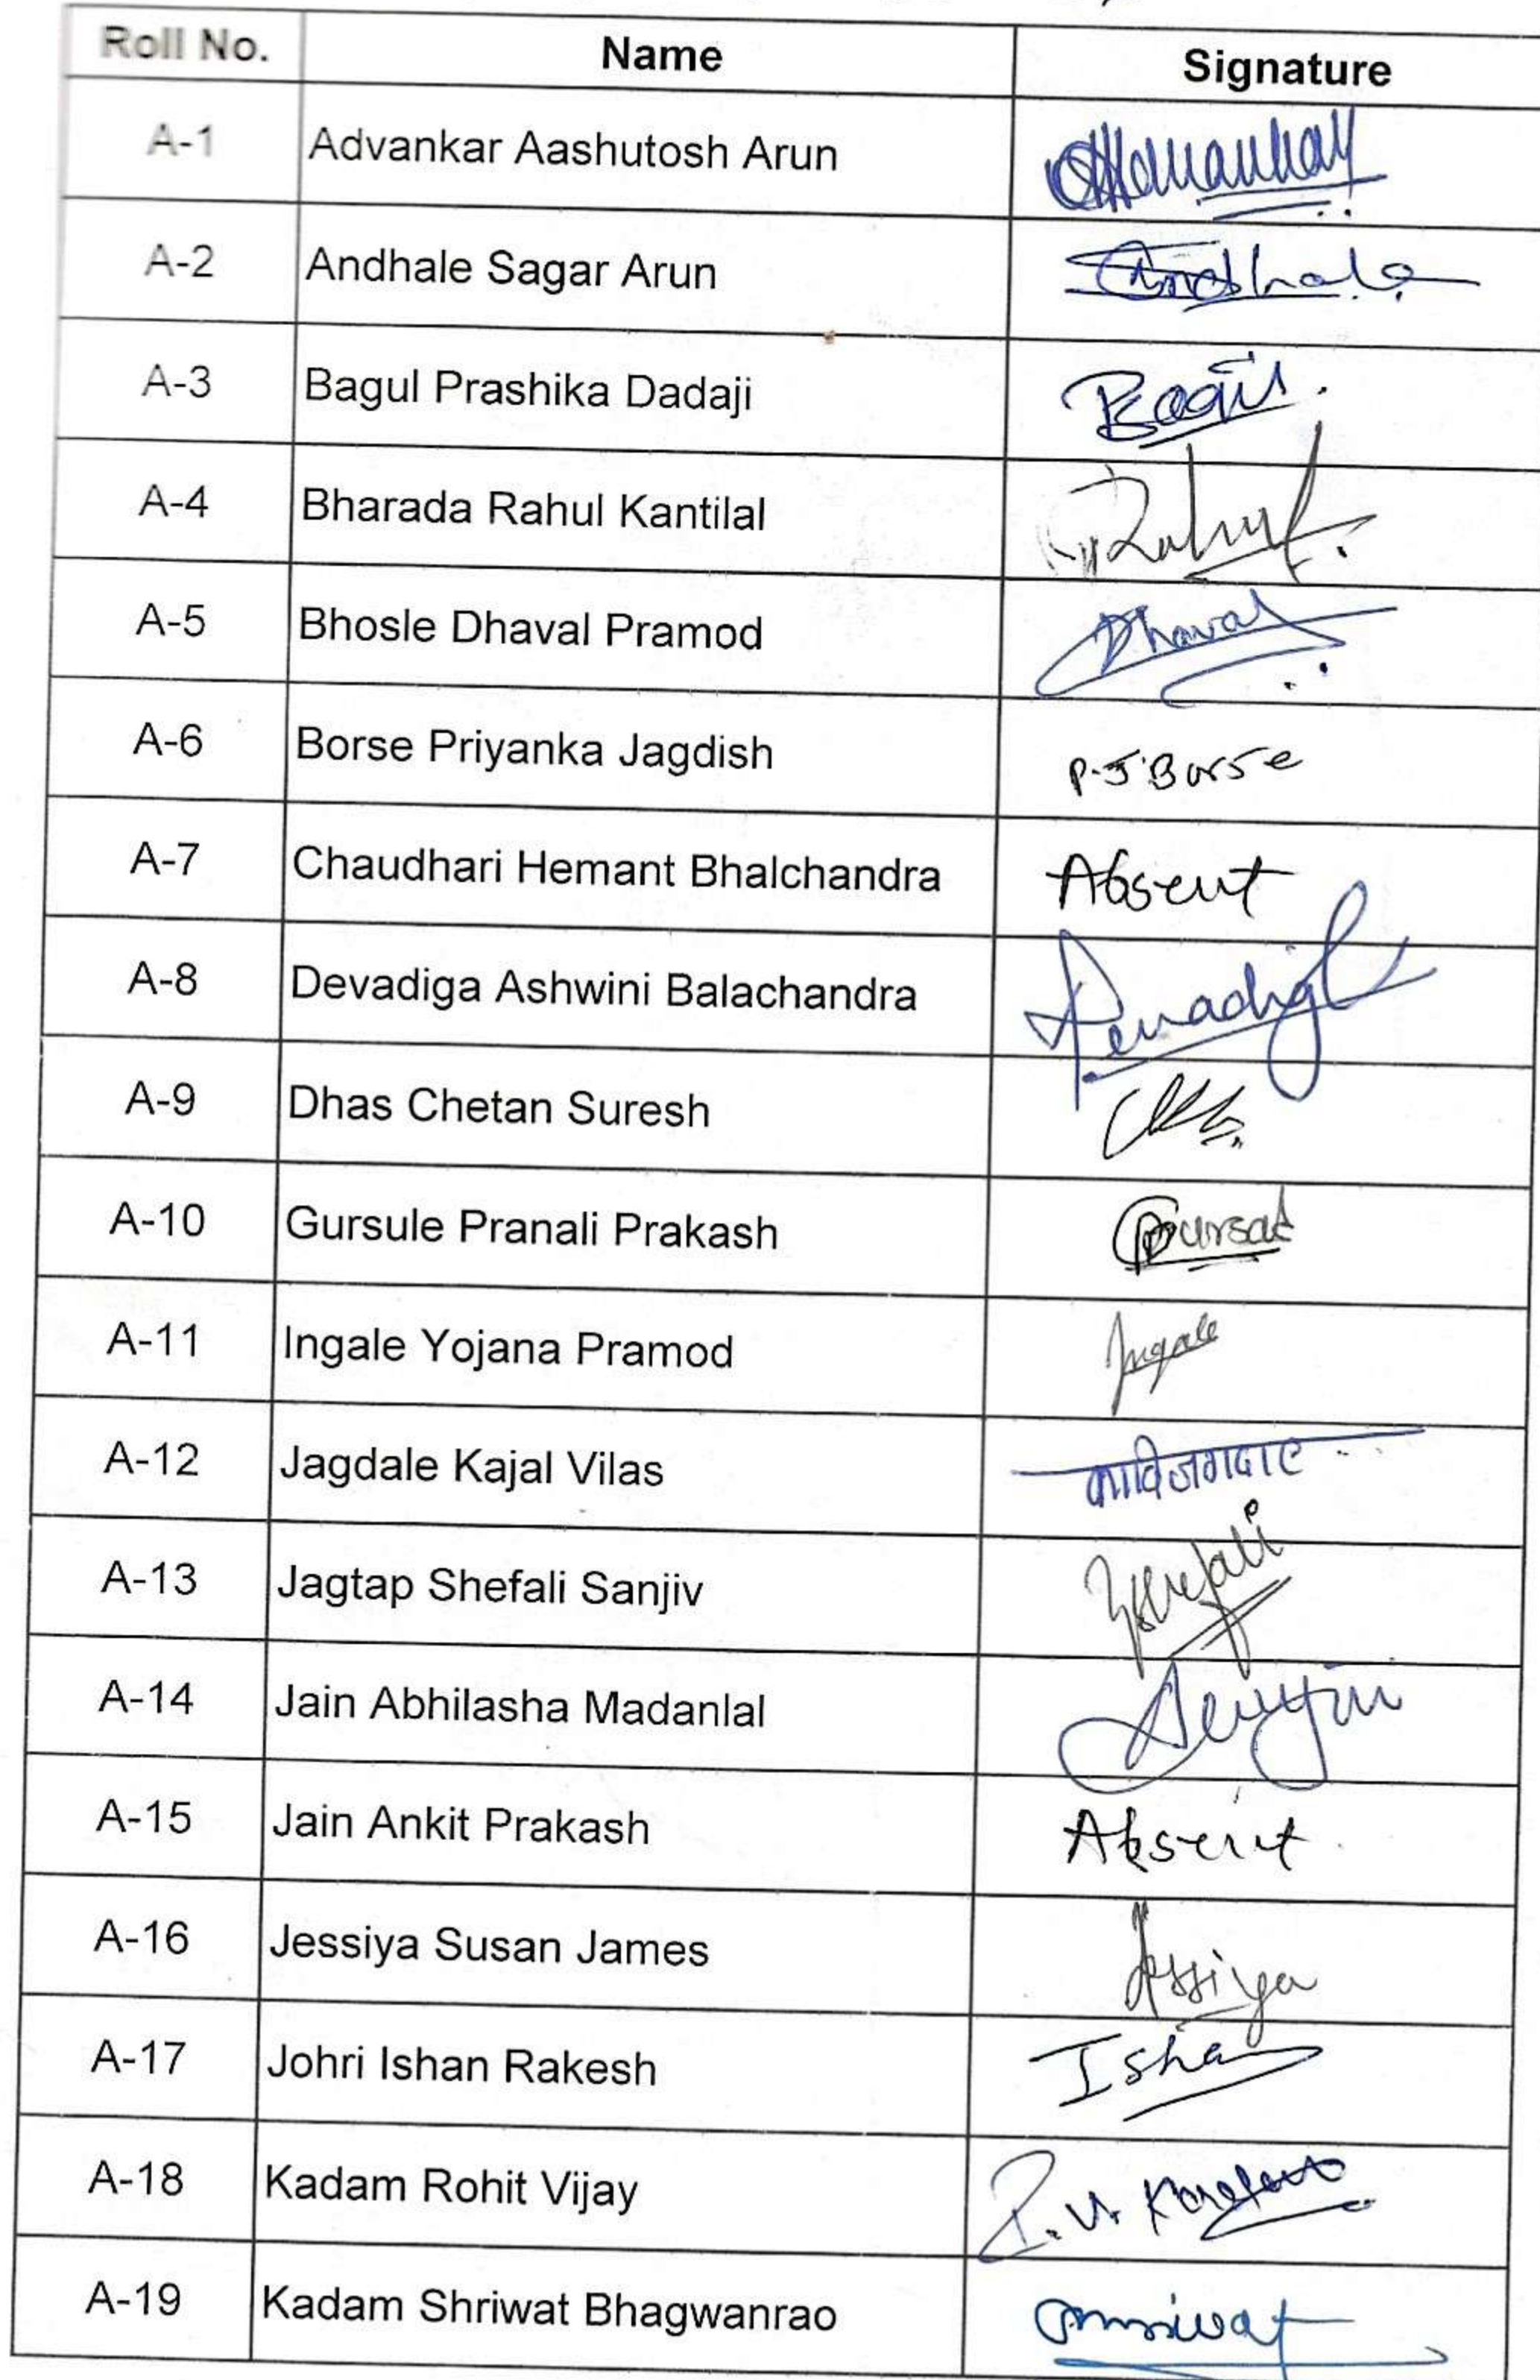 Roll No. Name Signature
A-1 Advankar Aashutosh Arun
A-2 Andhale Sagar Arun Andhale
A-3 Bagul Prashika Dadaji Bagul
A-4 Bharada Rahul Kantilal Rahul
A-5 Bhosle Dhaval Pramod Dhaval
A-6 Borse Priyanka Jagdish P.J Borse
A-7 Chaudhari Hemant Bhalchandra Absent
A-8 Devadiga Ashwini Balachandra
A-9 Dhas Chetan Suresh
A-10 Gursule Pranali Prakash
A-11 Ingale Yojana Pramod Ingale
A-12 Jagdale Kajal Vilas
A-13 Jagtap Shefali Sanjiv
A-14 Jain Abhilasha Madanlal
A-15 Jain Ankit Prakash Absent
A-16 Jessiya Susan James Jessiya
A-17 Johri Ishan Rakesh Isha
A-18 Kadam Rohit Vijay
A-19 Kadam Shriwat Bhagwanrao